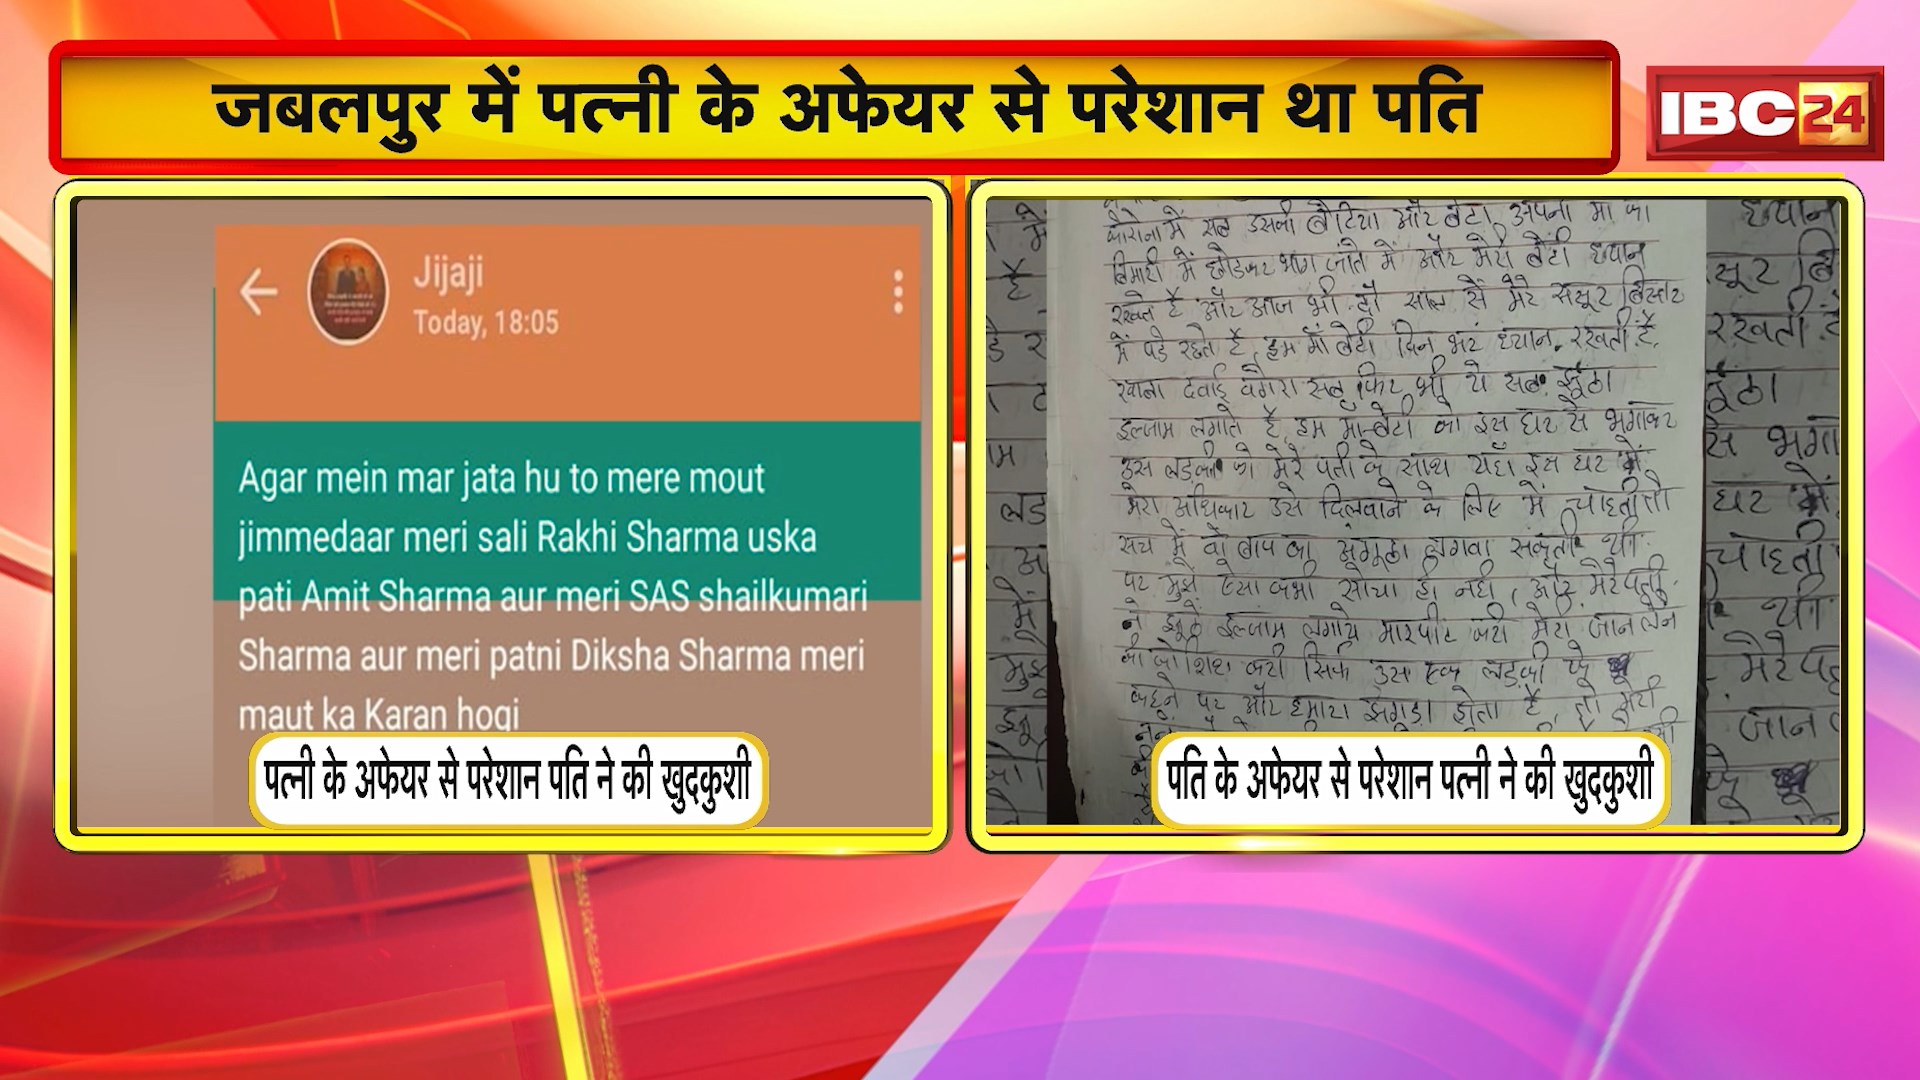 जबलपुर में पत्नी के अफेयर से परेशान था पति
IBC24
Jijaji
Today, 18:05
Agar mein mar jata hu to mere mout
jimmedaar meri sali Rakhi Sharma uska
pati Amit Sharma aur meri SAS shailkumari
Sharma aur meri patni Diksha Sharma meri
maut ka Karan hogi
पत्नी के अफेयर से परेशान पति ने की खुदकुशी
कोरोना में सब उसकी बेटिया और बेटा अपनी माँ को
बिमारी में छोडकर भाग जाते में और मेरी बेटी ध्यान
रखते है और आज भी दो साल सें मेरे ससूर बिस्तर
में पडे रहते है हम माँ बेटी दिन भर ध्यान रखती है
खाना दवाई वगेरा सब फिर भी ये सब झूठा
इल्जाम लगाते है हम माँ-बेटी को इस घर से भगाकर
उस लड़की को मेरे पती के साथ यहाँ इस घर में
मेरा अधिकार उसे दिलवाने के लिए में चाहती तो
सच में वो बाप का अंगूठा लगवा सकती थी
पर मुझे ऐसा कभी सोचा ही नही और मेरे पती
ने झूठे इल्जाम लगाये मारपीट करी मेरी जान लेने
की कोशिश करी सिर्फ उस एक लड़की के
कहने पर और हमारा झगड़ा होता है तो मेरी
पति के अफेयर से परेशान पत्नी ने की खुदकुशी